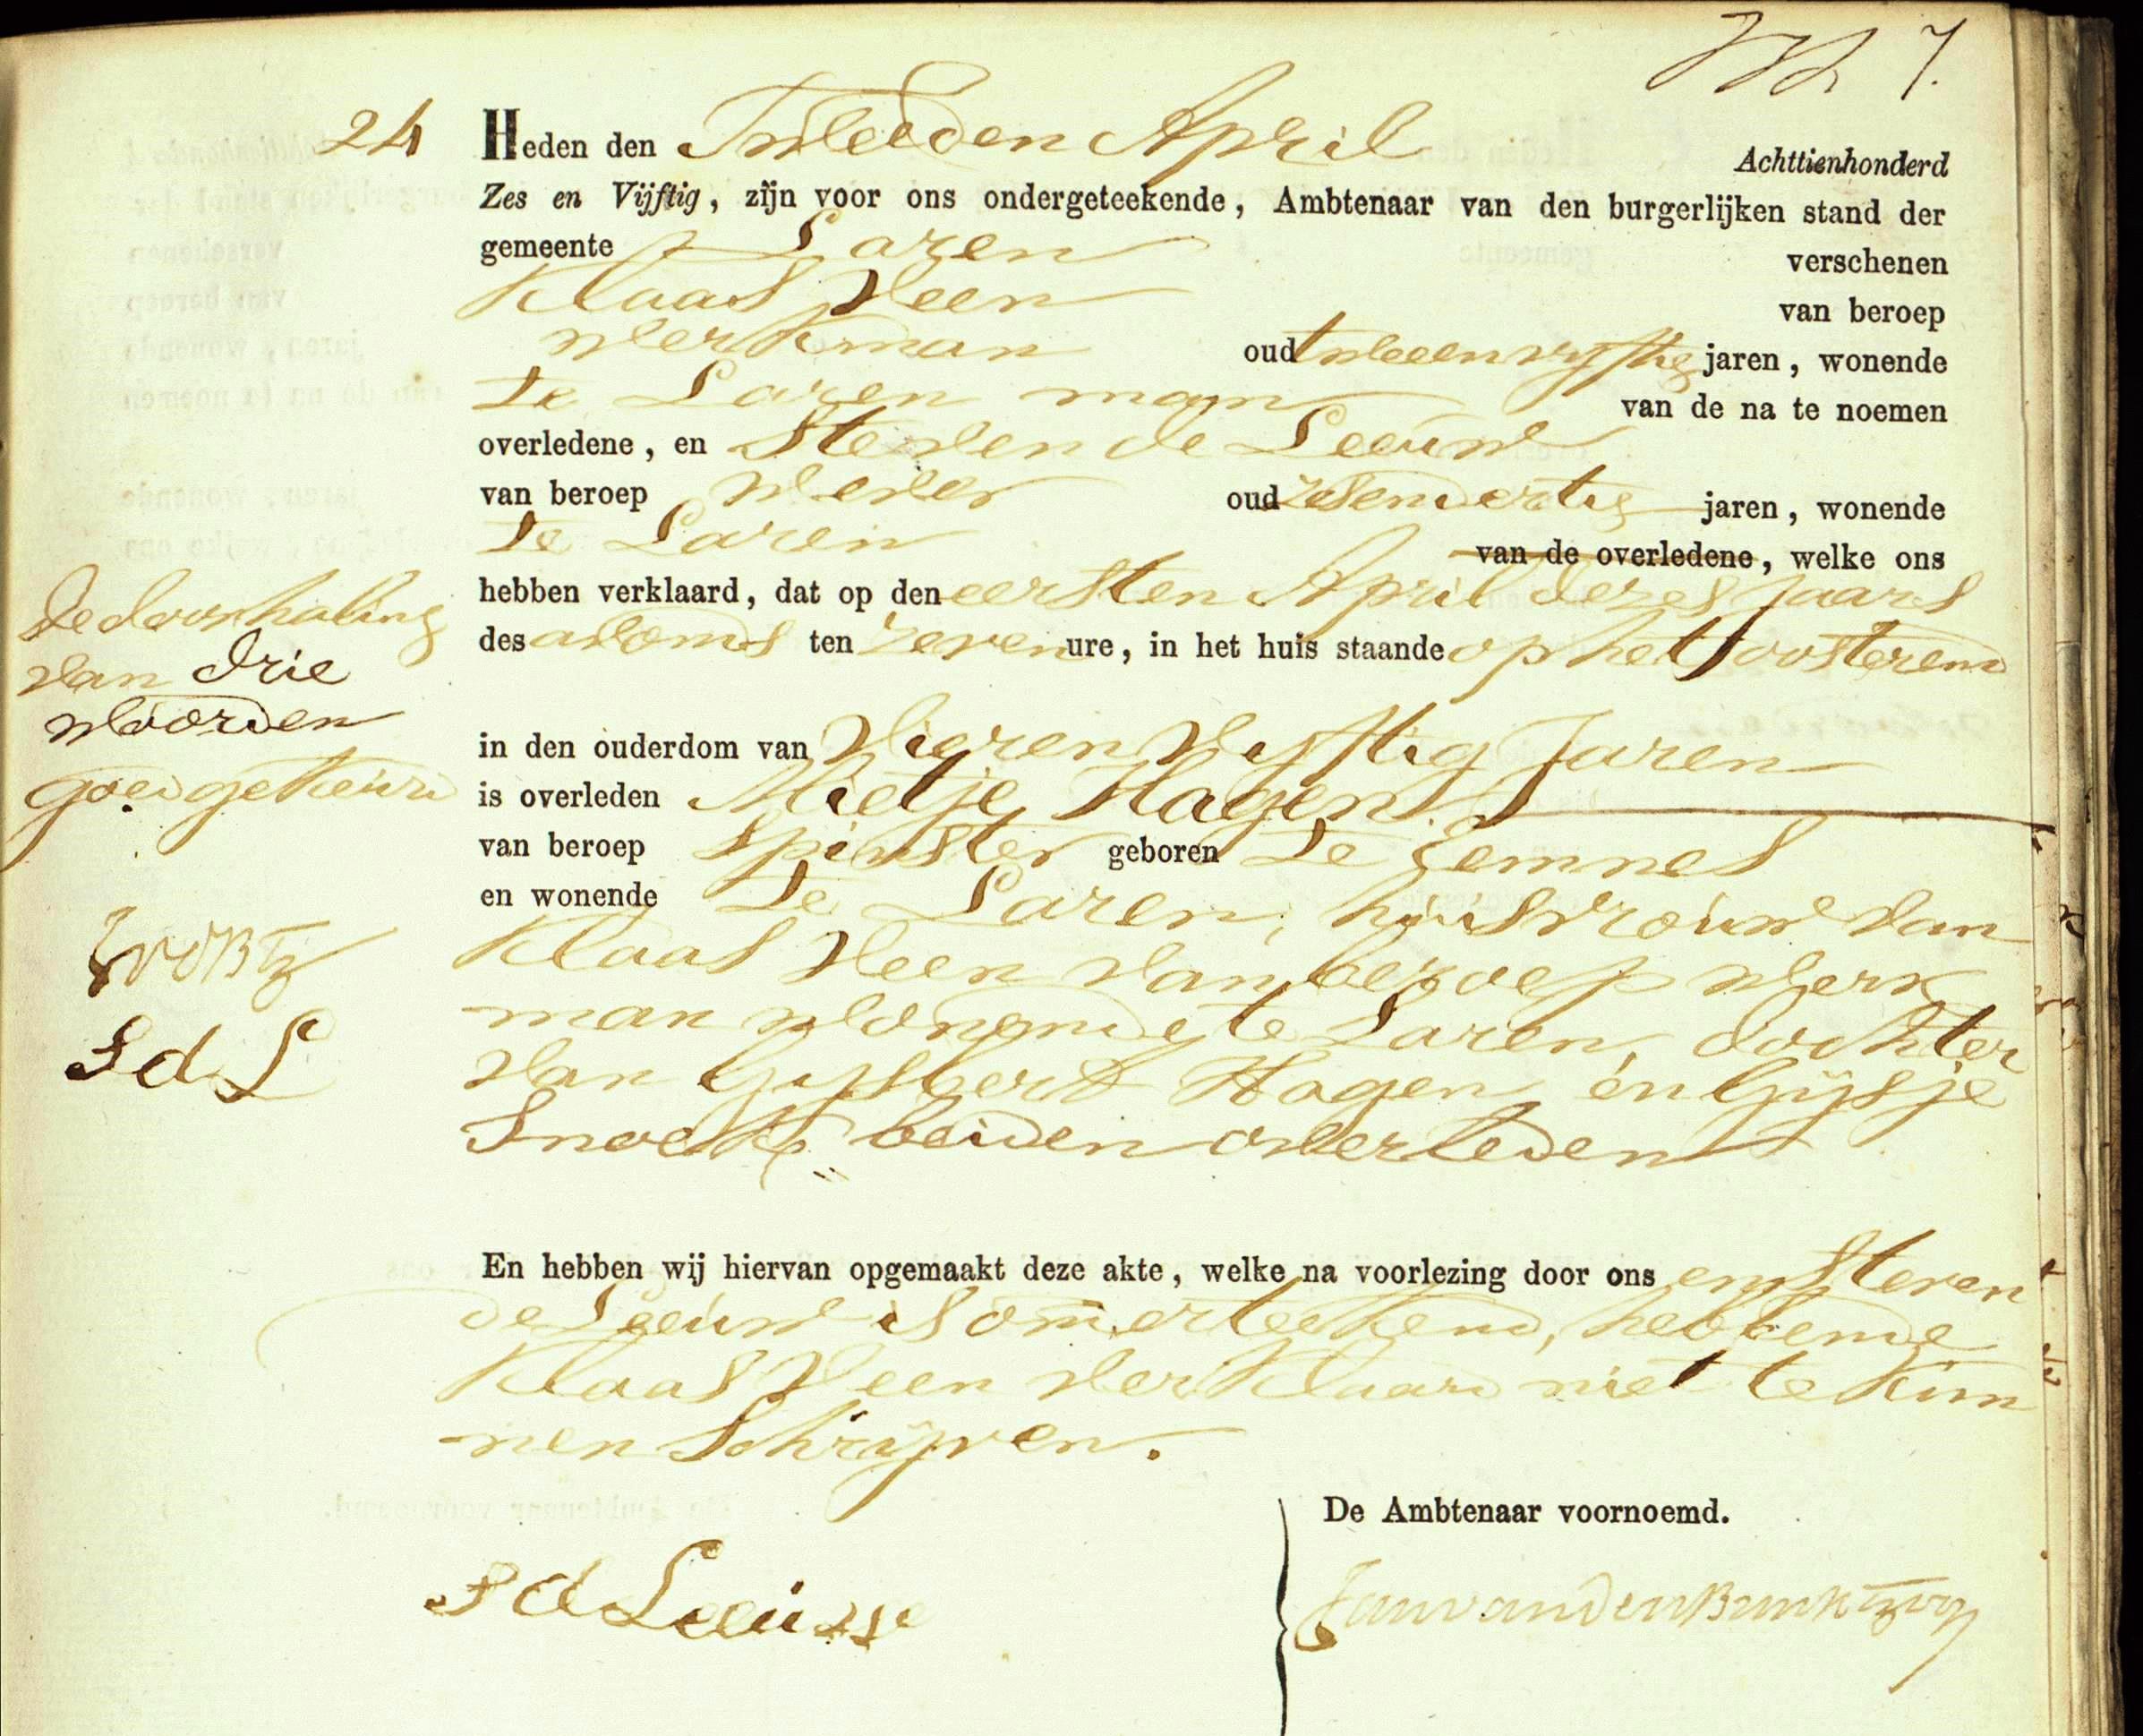 7.
24 Heden den Tweeden April Achttienhonderd
Zes en Vijftig, zijn voor ons ondergeteekende, Ambtenaar van den burgerlijken stand der
gemeente Laren verschenen
Klaas Veen van beroep
werkman oud tweeenvyftig jaren, wonende
te Laren man van de na te noemen
overledene, en Steven de Leeuw
van beroep wever oud zesendertig jaren, wonende
te Laren van de overledene, welke ons
hebben verklaard, dat op den eersten April dezes Jaars
des avonds ten zeven ure, in het huis staande op het oosterend
in den ouderdom van Vieren Vyftig Jaren
is overleden Mietje Hagen
van beroep Spinster geboren te Eemnes
en wonende te Laren, huisvrouw van
Klaas Veen van beroep werk
man wonende te Laren, dochter
van Gysbert Hagen en Gijsje
Snoek beiden overleden
De doorhaling
van drie
woorden
goedgekeurd
S d L
En hebben wij hiervan opgemaakt deze akte, welke na voorlezing door ons en Steven
de Leeuw is onderteekend, hebbende
Klaas Veen verklaard niet te kun
nen Schrijven.
De Ambtenaar voornoemd.
S d Leeuw